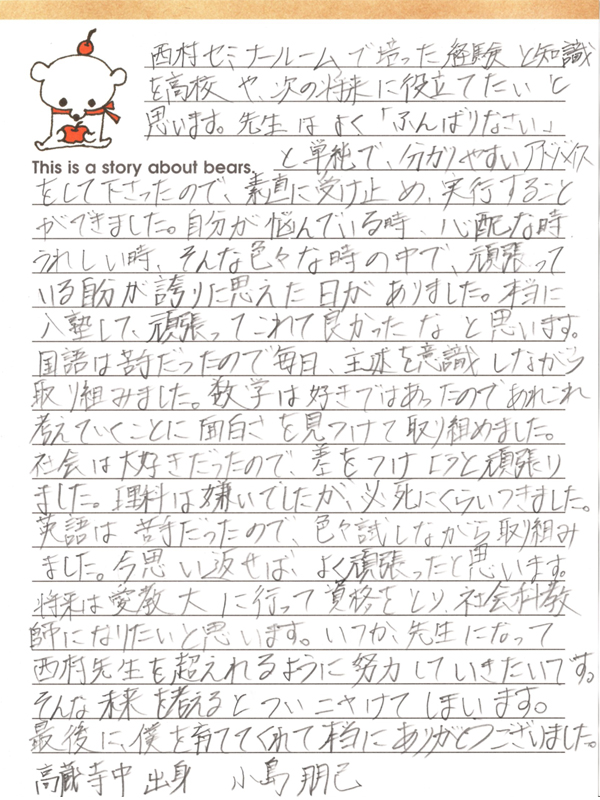 西村セミナールームで培った経験と知識
を高校や、次の将来に役立てたいと
思います。先生はよく「ふんばりなさい」
This is a story about bears.
と単純で、分かりやすいアドバイス
をして下さったので、素直に受け止め、実行すること
ができました。自分が悩んでいる時、心配な時
うれしい時、そんな色々な時の中で、頑張って
いる自分が誇りに思えた日がありました。本当に
入塾して、頑張ってこれて良かったなと思います。
国語は苦手だったので毎日、主述を意識しながら
取り組みました。数学は好きではあったのであれこれ
考えていくことに面白さを見つけて取り組めました。
社会は大好きだったので、差をつけようと頑張り
ました。理科は嫌いでしたが、必死にくらいつきました。
英語は苦手だったので、色々試しながら取り組み
ました。今思い返せば、よく頑張ったと思います。
将来は愛教大に行って資格をとり、社会科教
師になりたいと思います。いつか、先生になって
西村先生を超えれるように努力していきたいです。
そんな未来を考えるとついニヤけてしまいます。
最後に、僕を育ててくれて本当にありがとうございました。
高蔵寺中出身 小島朋己